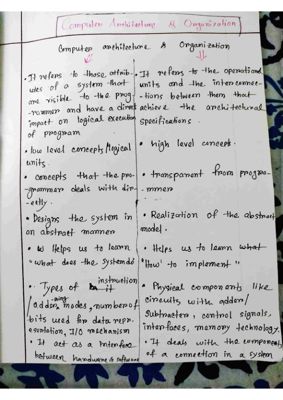 Computer Architecture & Organization
Computer architecture & Organization
• It refers to those attrib-
utes of a system that
are visible to the prog-
rammer and have a direct
impact on logical execution
of program
• low level concepts/logical
units.
• concepts that the pro-
grammer deals with dir-
ectly.
• Designs the system in
an abstract manner
• Helps us to learn
"what does the system do
• Types of instruction
/addressing modes, number of
bits used for data repr-
esentation, I/O mechanism
• It act as a interface
between hardware & software
• It refers to the operational
units and the interconnec-
tions between them that
achieve the architectural
specifications.
• high level concept.
• transparent from progra-
mmer
• Realization of the abstract
model.
• Helps us to learn what
"How to implement"
• Physical components like
circuits, with adder/
subtracter, control signals,
interfaces, memory technology.
• It deals with the components
of a connection in a system